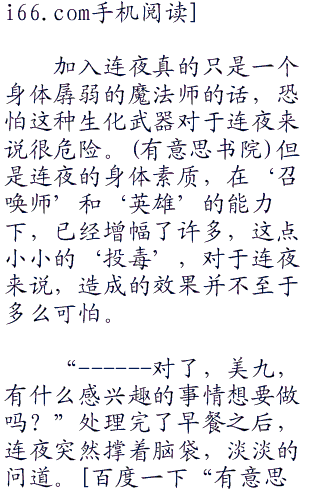 i66.com手机阅读]
加入连夜真的只是一个
身体孱弱的魔法师的话，恐
怕这种生化武器对于连夜来
说很危险。(有意思书院)但
是连夜的身体素质，在‘召
唤师’和‘英雄’的能力
下，已经增幅了许多，这点
小小的‘投毒’，对于连夜
来说，造成的效果并不至于
多么可怕。
“------对了，美九，
有什么感兴趣的事情想要做
吗？”处理完了早餐之后，
连夜突然撑着脑袋，淡淡的
问道。[百度一下“有意思